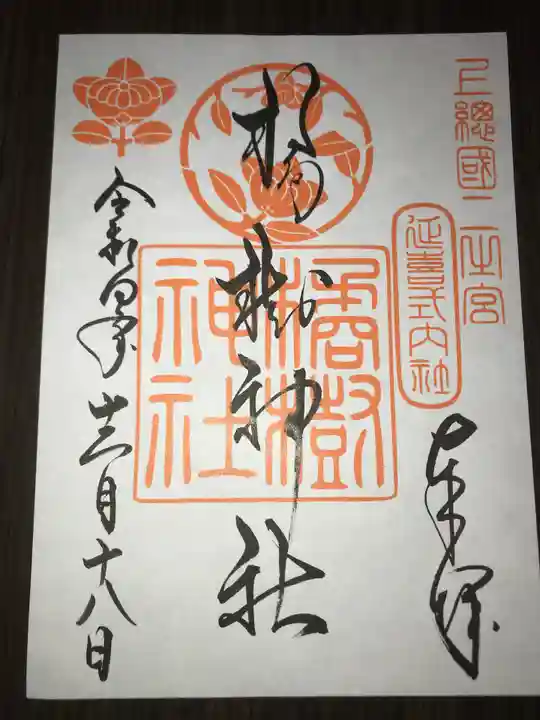 上總國二之宮
延喜式内社
奉拝
橘樹神社
橘樹神社
令和四年十二月十八日